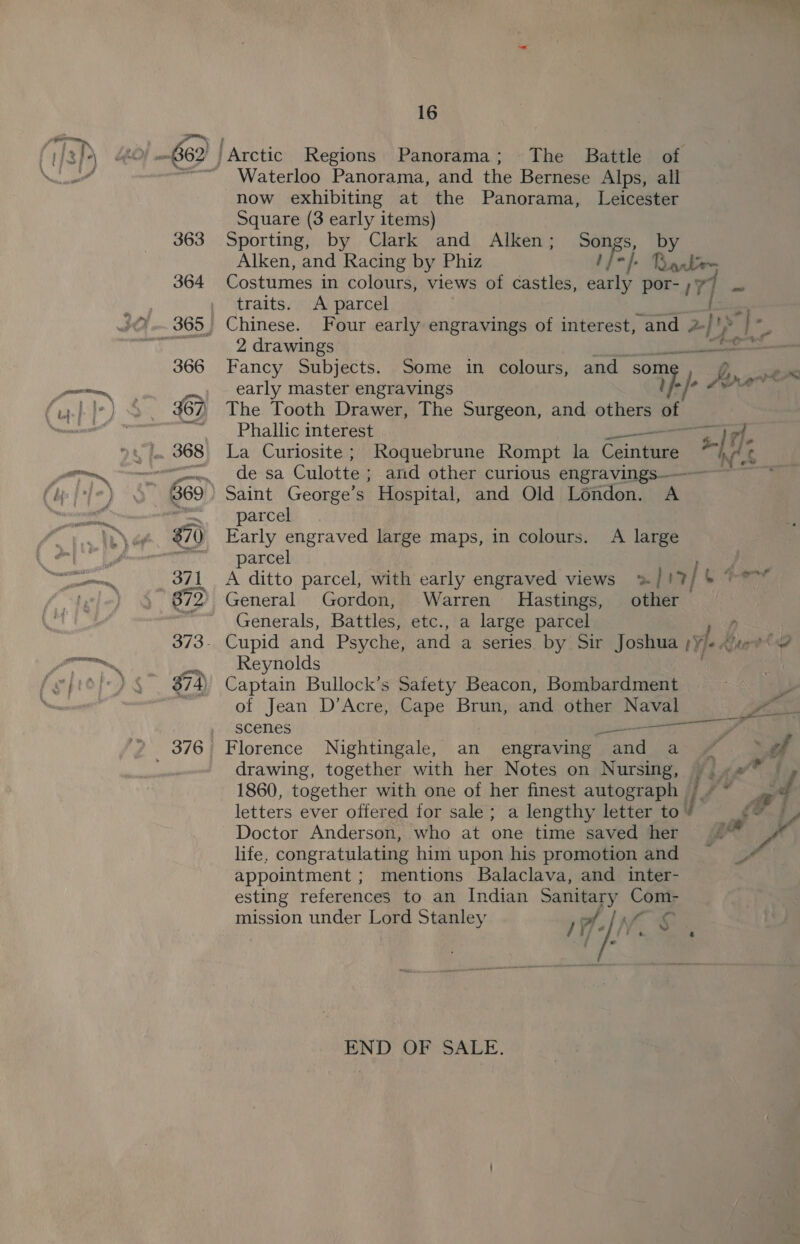 16
362 Arctic Regions Panorama; The Battle of
Waterloo Panorama, and the Bernese Alps, all
now exhibiting at the Panorama, Leicester
Square (3 early items)
363 Sporting, by Clark and Alken; Songs, by
Alken, and Racing by Phiz 1/-/-
364 Costumes in colours, views of castles, early por-
traits. A parcel
365 Chinese. Four early engravings of interest, and
2 drawings
366 Fancy Subjects. Some in colours, and some
early master engravings
367 The Tooth Drawer, The Surgeon, and others of
Phallic interest
368 La Curiosite; Roquebrune Rompt la Ceinture
de sa Culotte; and other curious engravings
369 Saint George's Hospital, and Old London. A
parcel
370 Early engraved large maps, in colours. A large
parcel
371 A ditto parcel, with early engraved views
372 General Gordon, Warren Hastings, other
Generals, Battles, etc., a large parcel
373 Cupid and Psyche, and a series by Sir Joshua
Reynolds
374 Captain Bullock's Safety Beacon, Bombardment
of Jean D'Acre, Cape Brun, and other Naval
scenes
376 Florence Nightingale, an engraving and a
drawing, together with her Notes on Nursing,
1860, together with one of her finest autograph
letters ever offered for sale; a lengthy letter to
Doctor Anderson, who at one time saved her
life, congratulating him upon his promotion and
appointment; mentions Balaclava, and inter-
esting references to an Indian Sanitary Com-
mission under Lord Stanley
END OF SALE.